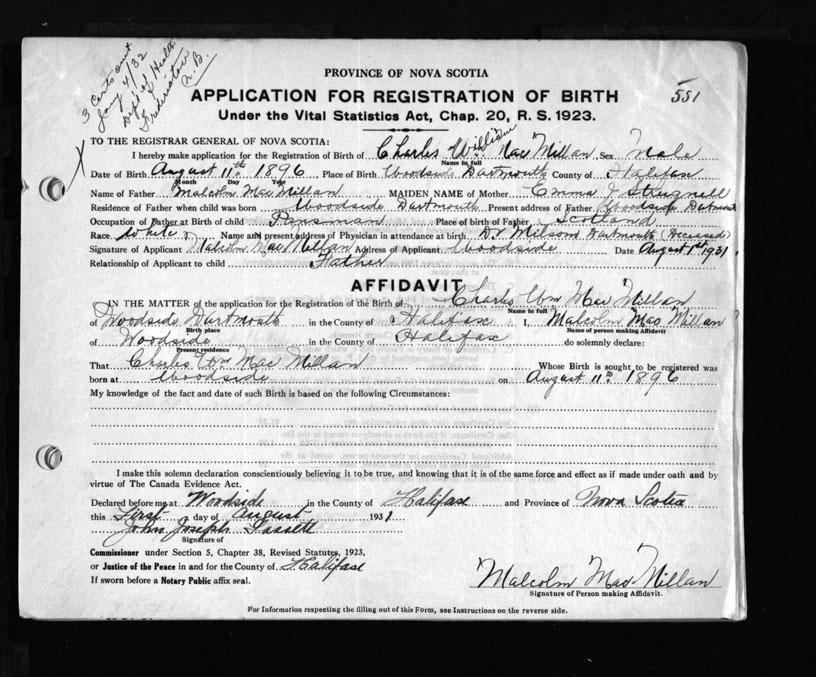 3 Certs out
Jany 4/32
Dept of Health
Fredericton
N.B.
PROVINCE OF NOVA SCOTIA
APPLICATION FOR REGISTRATION OF BIRTH
551
Under the Vital Statistics Act, Chap. 20, R. S. 1923.
TO THE REGISTRAR GENERAL OF NOVA SCOTIA:
I hereby make application for the Registration of Birth of Charles William Mac Millan Sex Male
Name in full
Date of Birth August 11th 1896 Place of Birth Woodside Dartmouth County of Halifax
Month Day Year
Name of Father Malcolm Mac Millan MAIDEN NAME of Mother Emma J Strugnell
Residence of Father when child was born Woodside Dartmouth Present address of Father Woodside Dartmouth
Occupation of Father at Birth of child Pansman Place of birth of Father Scotland
Race White Name and present address of Physician in attendance at birth Dr Milsom Dartmouth (Deceased)
Signature of Applicant Malcolm MacMillan Address of Applicant Woodside Date August 1st 1931
Relationship of Applicant to child Father
AFFIDAVIT
IN THE MATTER of the application for the Registration of the Birth of Charles Wm Mac Millan
Name in full
of Woodside Dartmouth in the County of Halifax I, Malcolm Mac Millan
Birth place Name of person making Affidavit
of Woodside in the County of Halifax do solemnly declare:
Present residence
That Charles Wm Mac Millan Whose Birth is sought to be registered was
born at Woodside on August 11th 1896
My knowledge of the fact and date of such Birth is based on the following Circumstances:
I make this solemn declaration conscientiously believing it to be true, and knowing that it is of the same force and effect as if made under oath and by
virtue of The Canada Evidence Act.
Declared before me at Woodside in the County of Halifax and Province of Nova Scotia
this First day of August 1931
John Joseph
Signature of
Commissioner under Section 5, Chapter 38, Revised Statutes, 1923,
or Justice of the Peace in and for the County of Halifax
If sworn before a Notary Public affix seal.
Malcolm Mac Millan
Signature of Person making Affidavit.
For Information respecting the filling out of this Form, see Instructions on the reverse side.